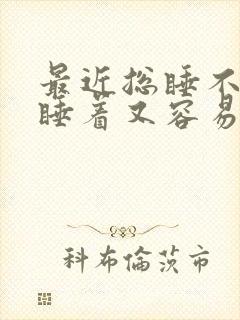 最近总睡不
睡着又容易
科布倫茨市